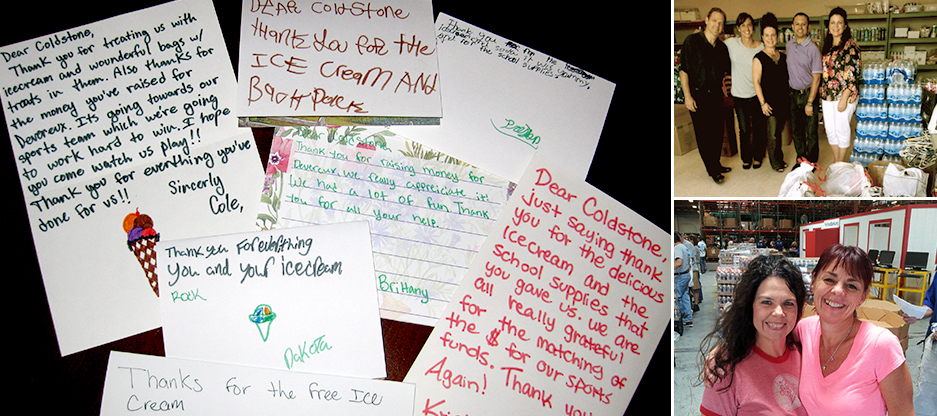 Dear Coldstone,
Thank you for treating us with
icecream and wounderful bags w/
treats in them. Also thanks for
the money you've raised for
Devereux. Its going towards our
sports team which we're going
to work hard to win. I hope
you come watch us play!!
Thank you for everything you've
done for us!!
Sincerly
Cole,
DEAR COLDSTONE
THANK YOU FOR THE
ICE CREAM AND
Thank you for
the school supplies.
Thank you for raising money for
Devereux. We really appriciate it!
We had a lot of fun. Thank
you for all your help.
Brittany
Thank you Foreverthing
you and your icecream
Rock
Dakota
Dear Coldstone,
just saying thank
you for the delicious
Icecream and the
school supplies that
you gave us. we are
all really grateful
for the matching of
the $ for our sports
funds. Thank you
Again!
Thanks for the free Ice
Cream